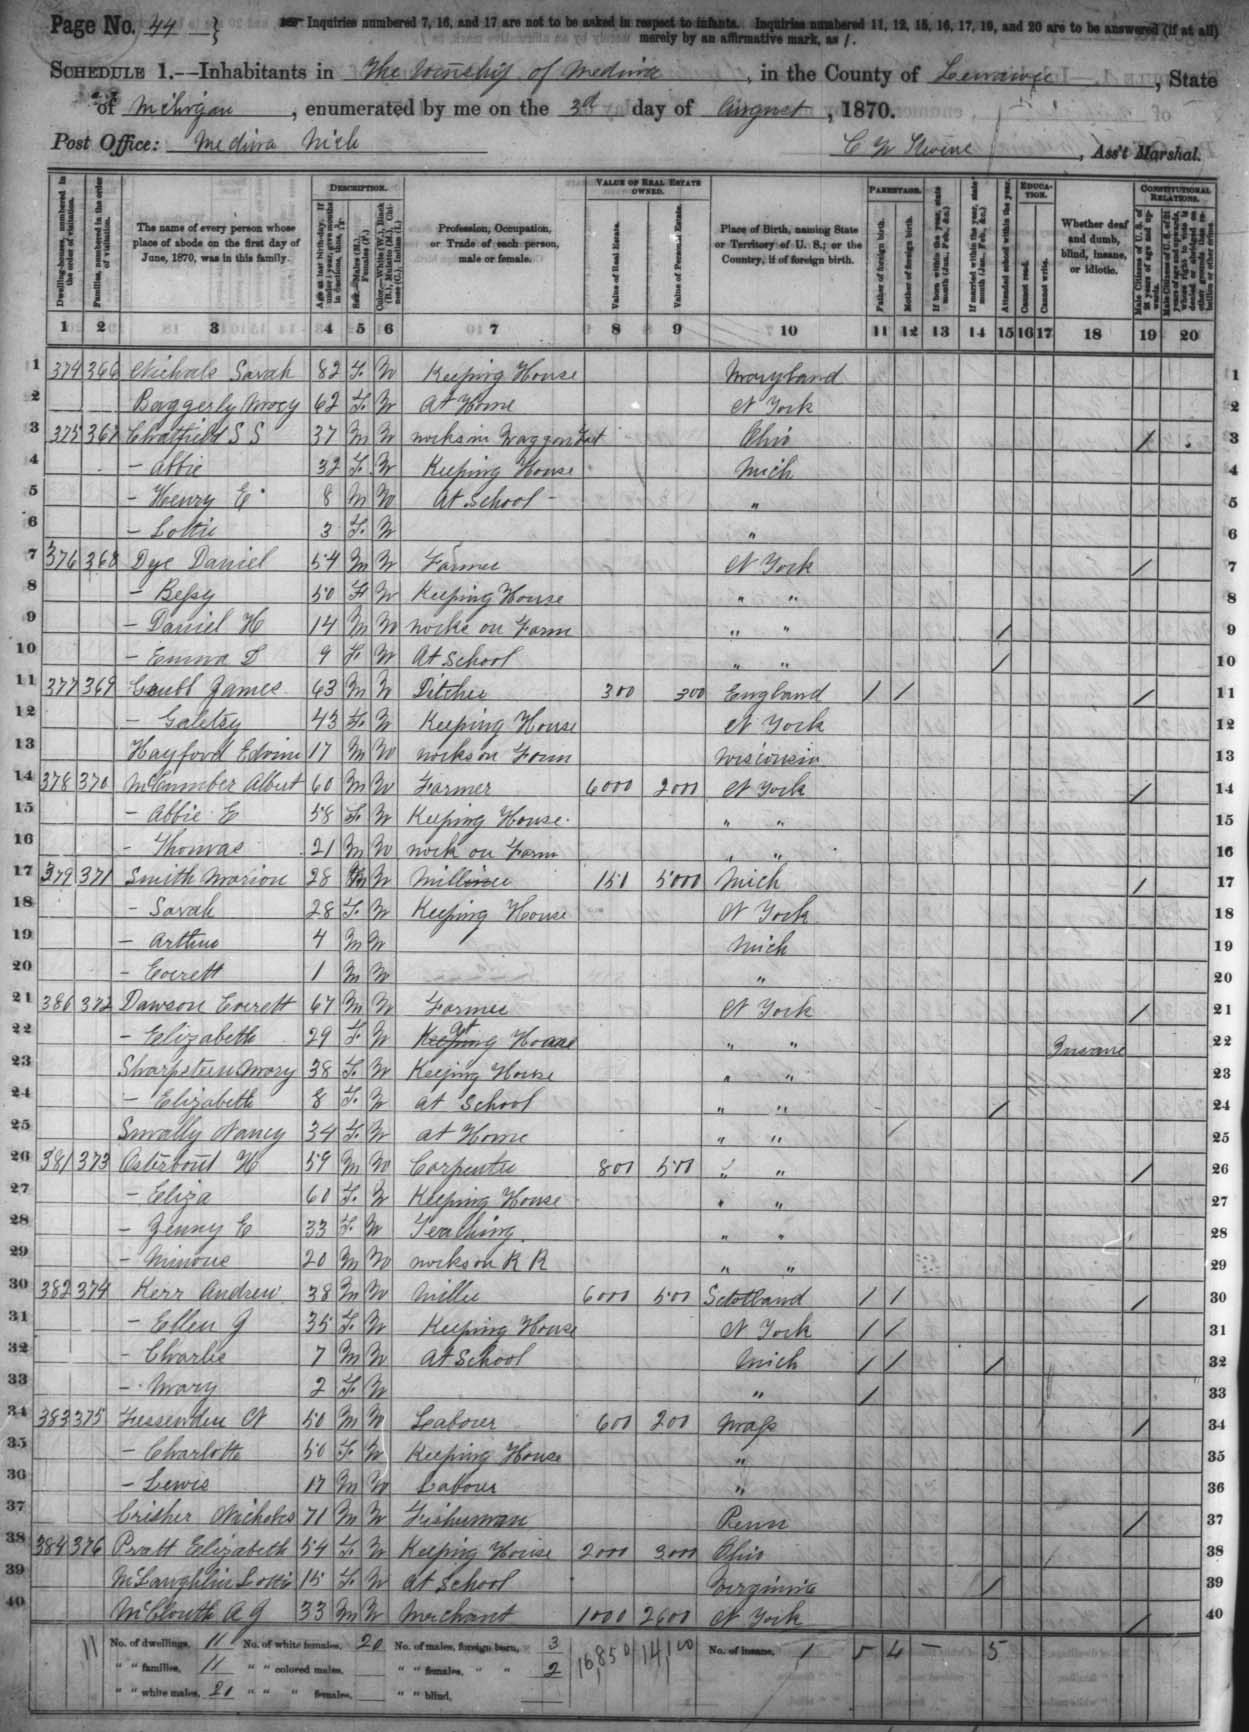 Page No. 44
Inquiries numbered 7, 16, and 17 are not to be asked in respect to infants. Inquiries numbered 11, 12, 15, 16, 17, 19, and 20 are to be answered (if at all)
merely by an affirmative mark, as /.
SCHEDULE 1.—Inhabitants in The Township of Medina, in the County of Lenawee, State
of Michigan, enumerated by me on the 3d day of August, 1870.
Post Office: Medina Mich
, Ass't Marshal.
Dwelling-houses, numbered in the order of visitation.
Families, numbered in the order of visitation.
The name of every person whose place of abode on the first day of June, 1870, was in this family.
DESCRIPTION.
Age at last birth-day. If under 1 year, give months in fractions, thus, 3/12
Sex.—Males (M.), Females (F.)
Color.—White (W.), Black (B.), Mulatto (M.), Chinese (C.), Indian (I.)
Profession, Occupation, or Trade of each person, male or female.
VALUE OF REAL ESTATE OWNED.
Value of Real Estate.
Value of Personal Estate.
Place of Birth, naming State or Territory of U. S.; or the Country, if of foreign birth.
PARENTAGE.
Father of foreign birth.
Mother of foreign birth.
If born within the year, state month (Jan., Feb., &c.)
If married within the year, state month (Jan., Feb., &c.)
Attended school within the year.
EDUCATION.
Cannot read.
Cannot write.
Whether deaf and dumb, blind, insane, or idiotic.
CONSTITUTIONAL RELATIONS.
1 2 3 4 5 6 7 8 9 10 11 12 13 14 15 16 17 18 19 20
1 374 366 Nichols Sarah 82 F. W Keeping House Maryland 1
2 Baggerly Mary 62 F. W At Home N York 2
3 375 367 Chatfield S S 37 M W works in Waggon Fact Ohio / 3
4 – Abbie 32 F. W Keeping House Mich 4
5 – Henry E 8 M W At School – " 5
6 – Lottie 3 F. W " 6
7 376 368 Dye Daniel 54 M W Farmer N York / 7
8 – Bessy 50 F W Keeping House " " 8
9 – Daniel H 14 M W works on Farm " " / 9
10 – Emma D 9 F. W At School " " / 10
11 377 369 James 63 M W Ditcher 300 300 England / / / 11
12 – 43 F. W Keeping House N York 12
13 Hayford Edwin 17 M W works on Farm Wisconsin 13
14 378 370 McCumber Albert 60 M W Farmer 6000 2000 N York / 14
15 – Abbie E 58 F. W Keeping House " " 15
16 – Thomas 21 M W work on Farm " " 16
17 379 371 Smith Marion 28 M W 150 5000 Mich / 17
18 – Sarah 28 F. W Keeping House N York 18
19 – Arthur 4 M W Mich 19
20 – Everett 1 M W " 20
21 380 372 Dawson Everett 67 M W Farmer N York / 21
22 – Elizabeth 29 F. W At Home " " Insane 22
23 Sharpsteen Mary 38 F. W Keeping House " " 23
24 – Elizabeth 8 F. W at School " " / 24
25 Nancy 34 F. W at Home " " 25
26 381 373 Osterhout H 59 M W Carpenter 800 500 " " / 26
27 – Eliza 60 F. W Keeping House " " 27
28 – Jenny E 33 F. W Teaching " " 28
29 – 20 M W works on R R " " 29
30 382 374 Kerr Andrew 38 M W Miller 6000 500 Scotland / / / 30
31 – Ellen J 35 F. W Keeping House N York / / 31
32 – Charlie 7 M W At School Mich / / / 32
33 – Mary 2 F. W " / 33
34 383 375 Fessenden N 50 M W Labourer 600 200 Mass / 34
35 – Charlotte 50 F. W Keeping House " 35
36 – Lewis 17 M W Labour " 36
37 Crisher Nicholas 71 M W Fisherman Penn / 37
38 384 376 Pratt Elizabeth 54 F. W Keeping House 2000 3000 Ohio 38
39 McLaughlin Lottie 15 F. W at School Virginia / 39
40 McClouth A J 33 M W Merchant 1000 2600 N York / 40
11 No. of dwellings, 11 No. of white females, 20 No. of males, foreign born, 3 16,850 14,100 No. of insane, 1 5 4 – 5
" " families, 11 " " colored males, " " females, " " 2
" " white males, 20 " " " females, " " blind,